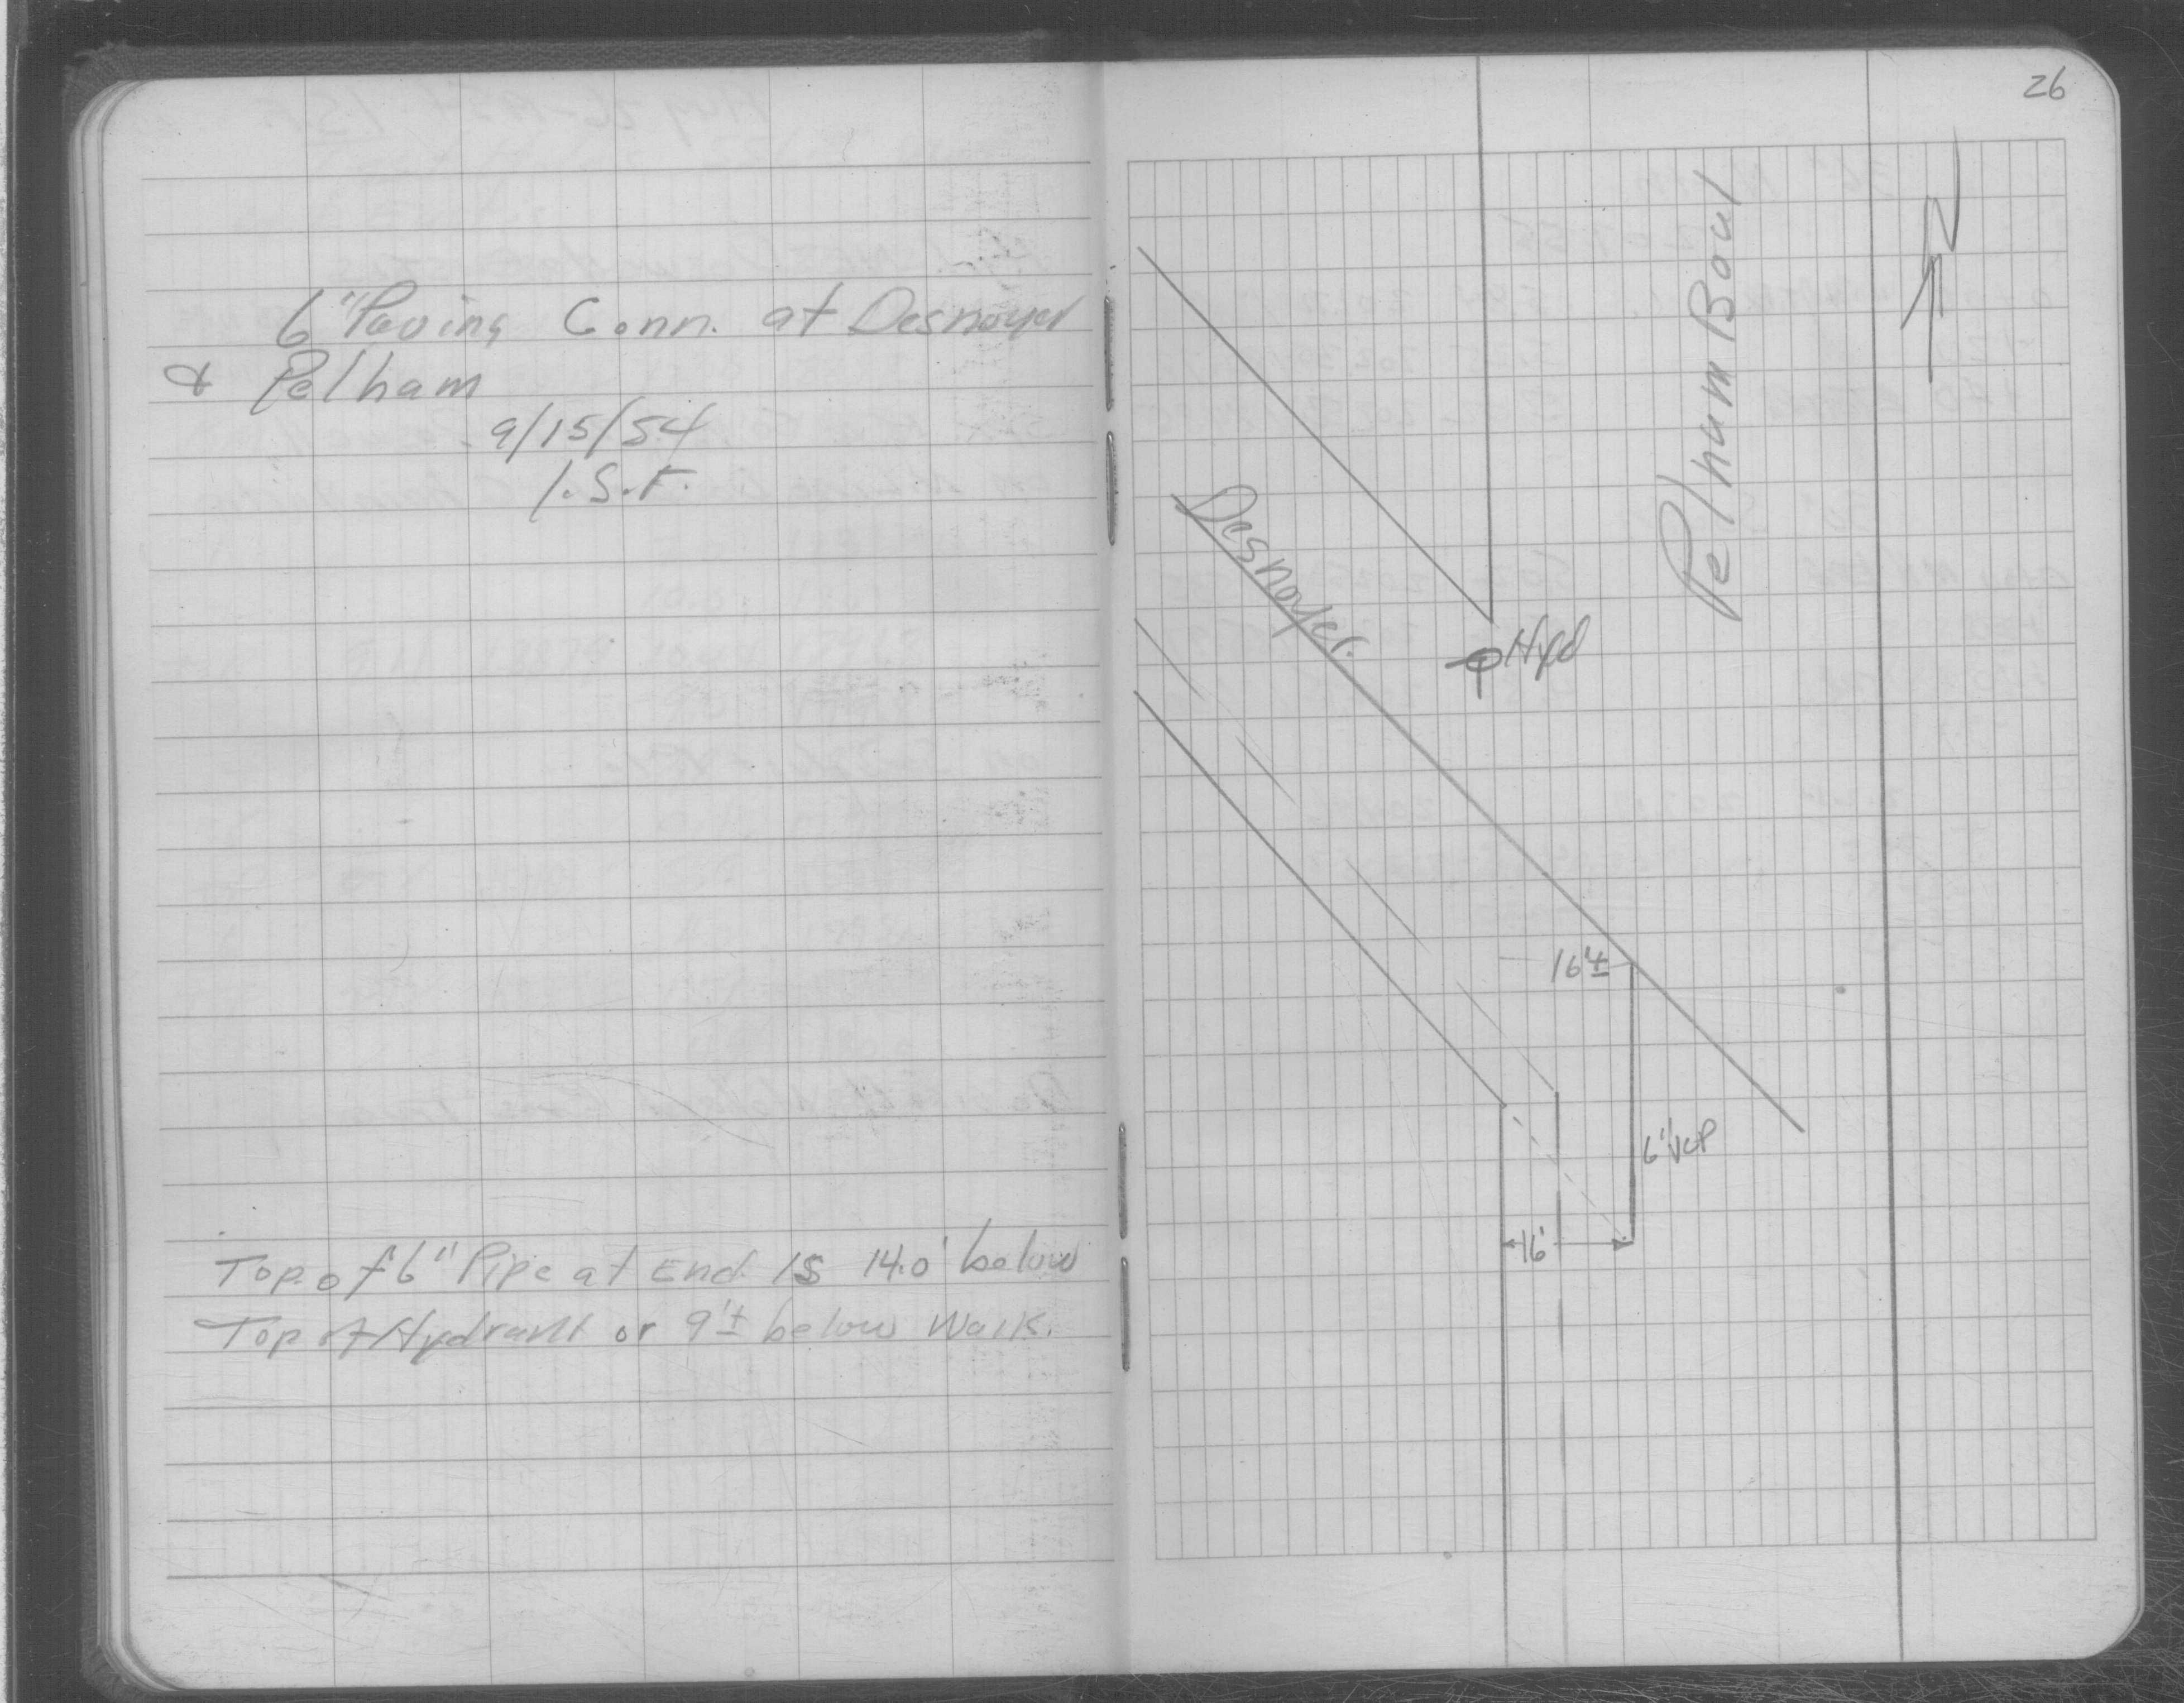 6" Paving Conn. at Desnoyer
& Pelham
9/15/54
I.S.F.
Top of 6" Pipe at End is 14.0' below
Top of Hydrant or 9'± below Walk.
26
N
Pelham Boul
Desnoyer.
Hyd
16'±
6" VCP
16'